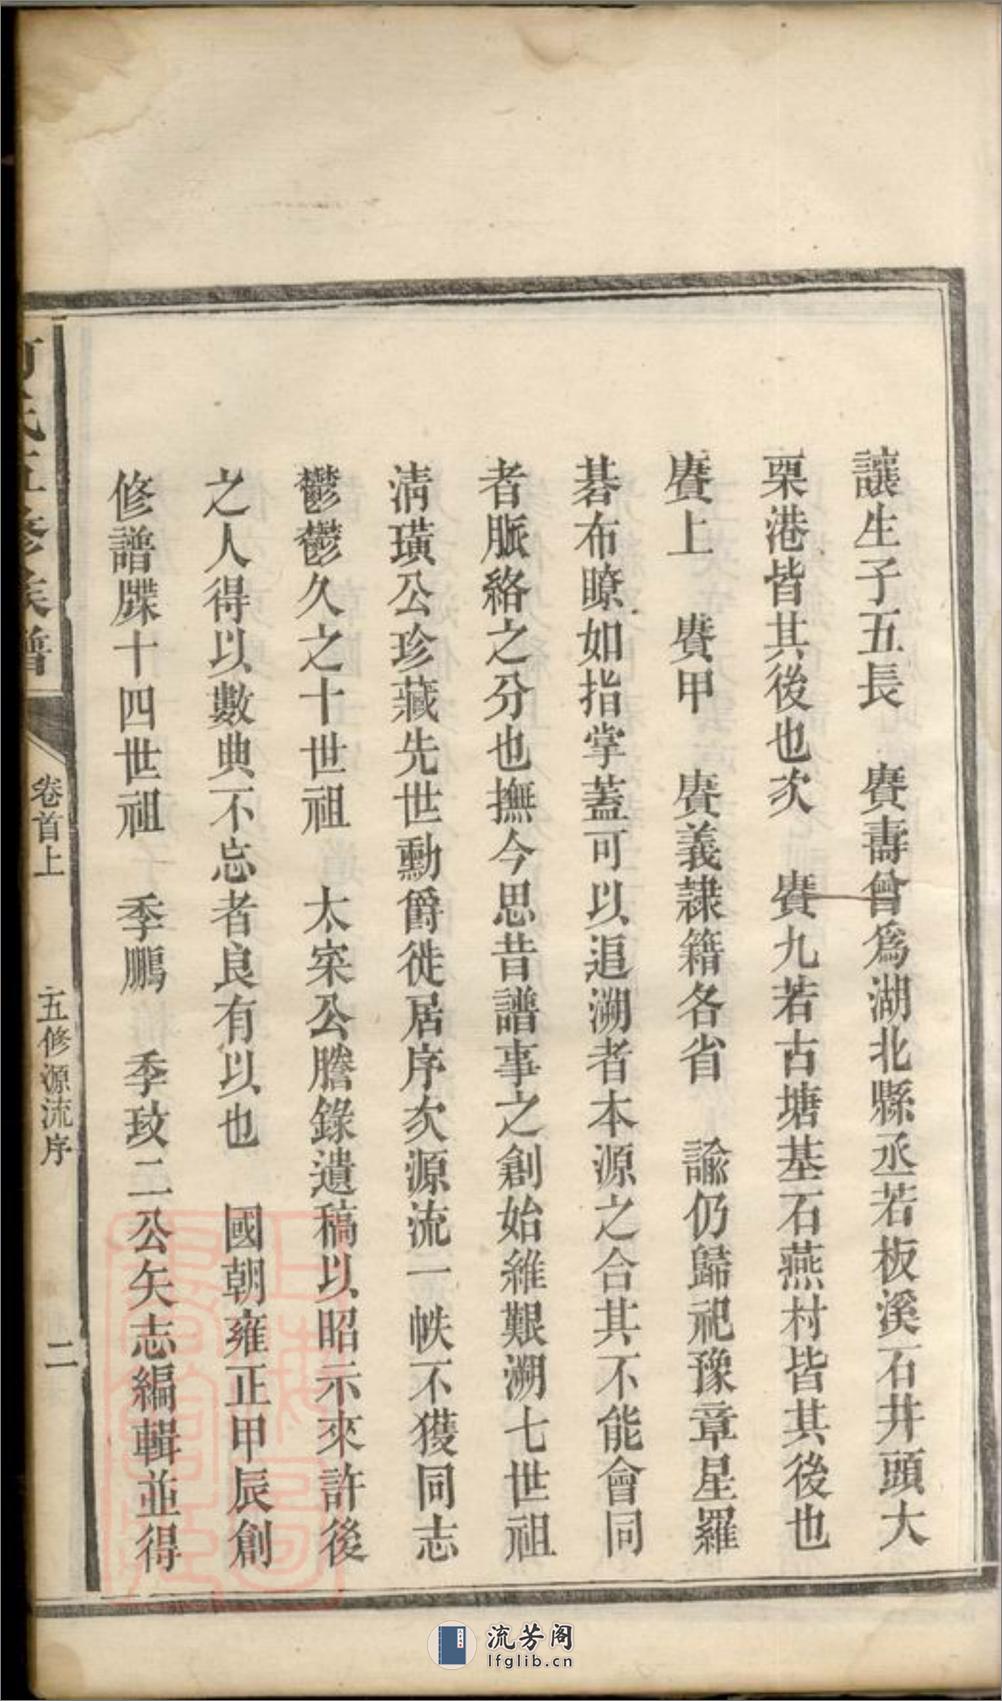 讓生子五長　賡壽曾爲湖北縣丞若板溪石井頭大
栗港皆其後也次　賡九若古塘基石燕村皆其後也
賡上　賡甲　賡義隷籍各省　諭仍歸祀豫章星羅
碁布瞭如指掌蓋可以追溯者本源之合其不能會同
者脈絡之分也撫今思昔譜事之創始維艱溯七世祖
淸璜公珍藏先世勳爵徙居序次源流一帙不獲同志
鬱鬱久之十世祖　太寀公謄錄遺稿以昭示來許後
之人得以數典不忘者良有以也　國朝雍正甲辰創
修譜牒十四世祖　季鵬　季玟二公矢志編輯並得
氏五修族譜
卷首上
五修源流序
二
流芳阁
lfglib.cn